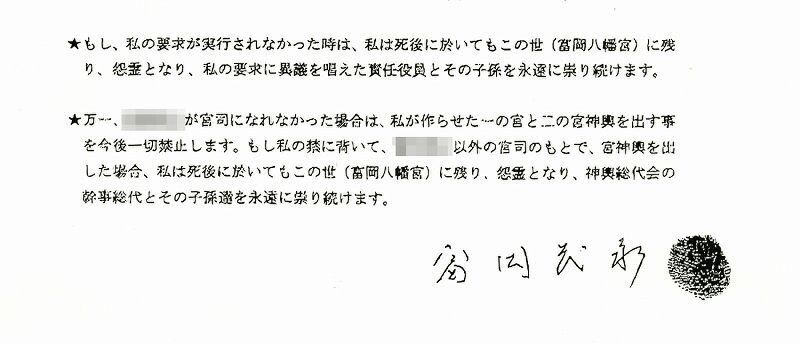 ★もし、私の要求が実行されなかった時は、私は死後に於いてもこの世（富岡八幡宮）に残
り、怨霊となり、私の要求に異議を唱えた責任役員とその子孫を永遠に祟り続けます。
★万一、が宮司になれなかった場合は、私が作らせた一の宮と二の宮神輿を出す事
を今後一切禁止します。もし私の禁に背いて、以外の宮司のもとで、宮神輿を出
した場合、私は死後に於いてもこの世（富岡八幡宮）に残り、怨霊となり、神輿総代会の
幹事総代とその子孫達を永遠に祟り続けます。
富岡茂永